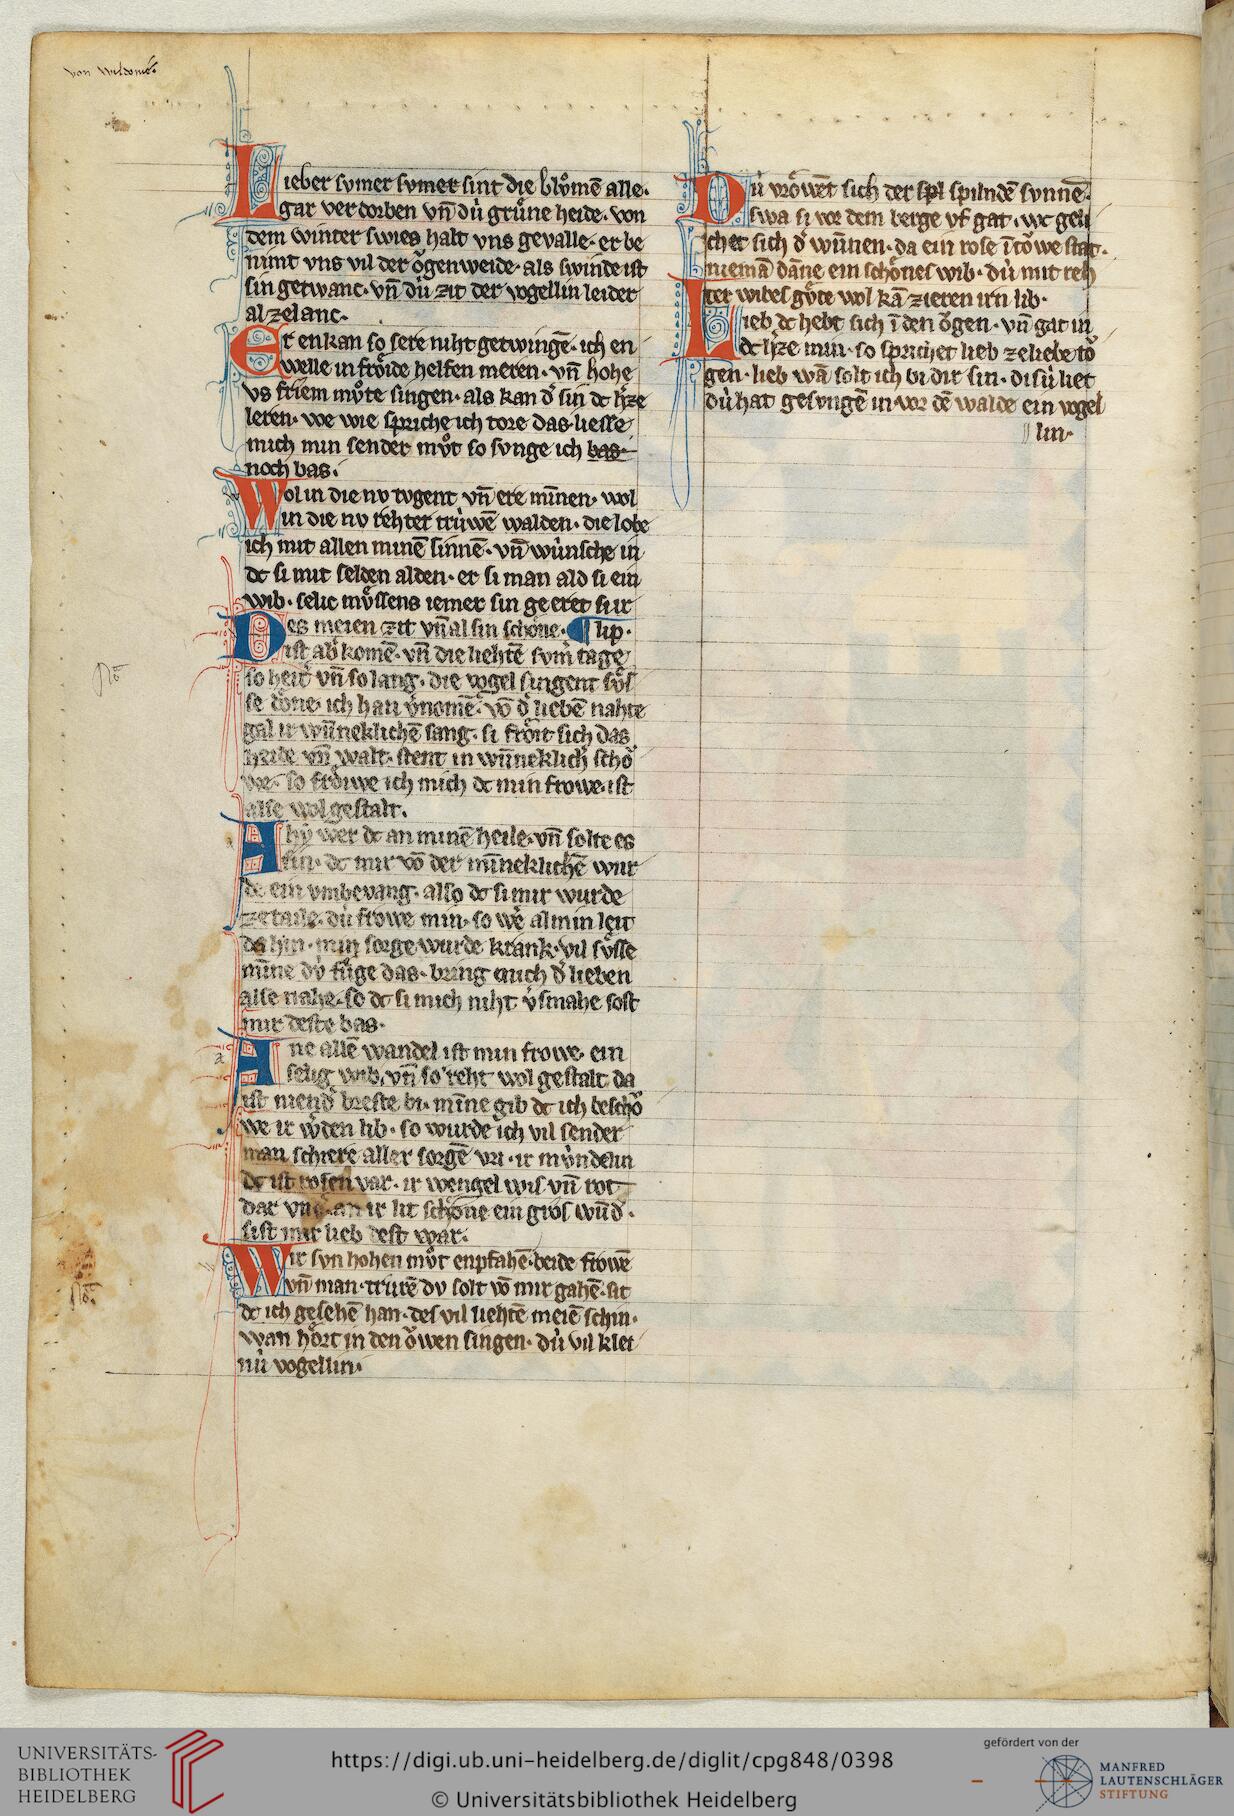 von wildonie.
Lieber svmer svmer sint die blvͦmē alle.
gar verdorben vn̄ dv̍ grvͤne heide. von
dem winter swies halt vns gevalle. er be
nimt vns vil der oͮgenweide. als swinde ist
sin getwanc. vn̄ dv̍ zit der vogellin leider
al zelanc.
Er enkan so sere niht getwingē. ich en
welle in froͤide helfen meren. vn̄ hohe
vs friem mvͦte singen. als kan d͛ sin dc h͛ze
leren. we wie spriche ich tore das. liesse
mich min sender mvͦt so svnge ich bas
noch bas.
Wol in die nv tvgent vn̄ ere mīnen. wol
in die nv rehter trv̍wē walden. die lobe
ich mit allen minē sinnē. vn̄ wv̍nsche in
dc si mit selden alden. er si man ald si ein
wib. selic mvͤssens iemer sin geeret sur
Des meien zit vn̄ al sin schoͤne. ¶ lip.
ist ab͛ komē. vn̄ die liehtē svm͛ tage
so heit͛ vn̄ so lang. die vogel singent svͤs
se doͤne. ich han v͛nomē. vō d͛ liebē nahte
gal ir wn̄neklichē sang. si froͤit sich das
heide vn̄ walt. stent in wn̄neklich͛ schoͮ
we. so froͤiwe ich mich dc min frowe. ist
alse wol gestalt.
Ahy wer dc an minē heile. vn̄ solte es
sin. dc mir vō der mīneklichē wur
de ein vmbevang. also dc si mir wurde
zeteile. dv̍ frowe min. so we͛ al min leit
da hin. min sorge wurde krank. vil svͤsse
mīne dv fvͤge das. bring mich d͛ lieben
alse nahe. so dc si mich niht v͛smahe sost
mir deste bas.
a
Ane allē wandel ist min frowe. ein
selig wib. vn̄ so reht wol gestalt da
ist niend͛ breste bi. mīne gib dc ich beschoͮ
we ir w͛den lib. so wurde ich vil sender
man schiere aller sorgē vri. ir mv̍ndelin
dc ist rosen var. ir wengel wis vn̄ rot
dar vnd͛. an ir lit schoͤne ein gros wūd͛.
sist mir lieb dest war.
Wir svn hohen mvͦt enpfahē. beide frowē
vn̄ man. trurē dv solt vō mir gahē. sit
dc ich gesehē han. des vil liehtē meiē schin.
wan hoͤrt in den oͮwen singen. dv̍ vil klei
nv̍ vogellin.
Dv̍ vroͤwēt sich der spil spilndē svnnē.
swa si vor dem berge vf gat. wc geli
chet sich d͛ wn̄nen. da ein rose ī toͮwe stat.
niemā dāne ein schoͤnes wib. dv̍ mit reh
ter wibes gvͤte wol kā zieren irn lib.
Lieb dc hebt sich ī den oͮgen. vn̄ gat in
dc h͛ze min. so sprichet lieb ze liebe toͮ
gen. lieb wā solt ich bi dir sin. disv̍ liet
dv̍ hat gesvngē in vor dē walde ein vogel
lin.
Nō
Nō.
UNIVERSITÄTS-
BIBLIOTHEK
HEIDELBERG
https://digi.ub.uni-heidelberg.de/diglit/cpg848/0398
© Universitätsbibliothek Heidelberg
gefördert von der
MANFRED
LAUTENSCHLÄGER
STIFTUNG